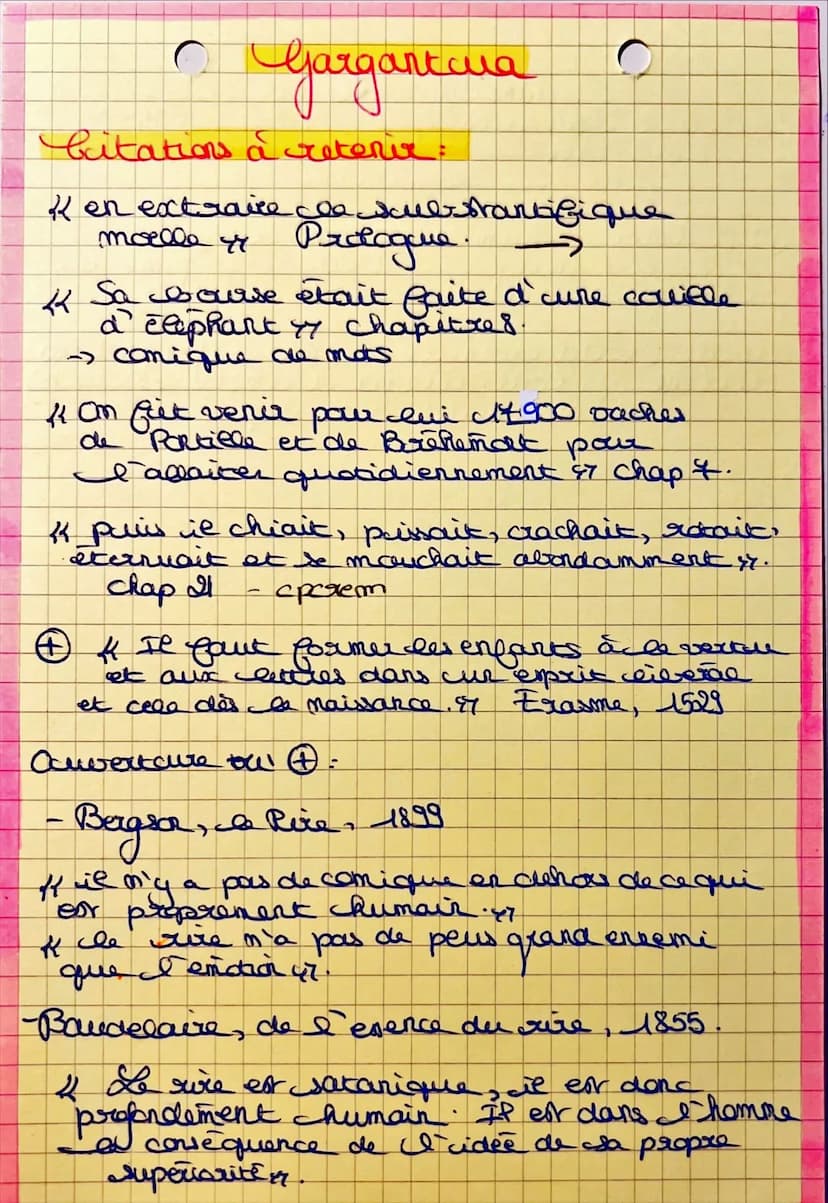 Gargantua
Citations à retenir :
« en extraire la substantifique
moelle » Prologue. →
« Sa bourse était faite d'une couille
d'éléphant » chapitre 8.
-> comique de mots
« On fit venir pour lui 17 900 vaches
de Pontille et de Bréhémont pour
l'allaiter quotidiennement » chap 7.
« puis il chiait, pissait, crachait, rotait,
éternuait et se mouchait abondamment ».
chap 21 -
⊕ « Il faut former les enfants à la vertu
et aux lettres dans un esprit libéral
et cela dès la naissance. » Erasme, 1529
Ouverture ou ⊕ :
- Bergson, le Rire, 1899
« il n'y a pas de comique en dehors de ce qui
est proprement humain. »
« le rire n'a pas de plus grand ennemi
que l'émotion ».
- Baudelaire, de l'esence du rire, 1855.
« Le rire est satanique, il est donc
profondement humain. Il est dans l'homme
la conséquence de l'idée de sa propre
supériorité ».